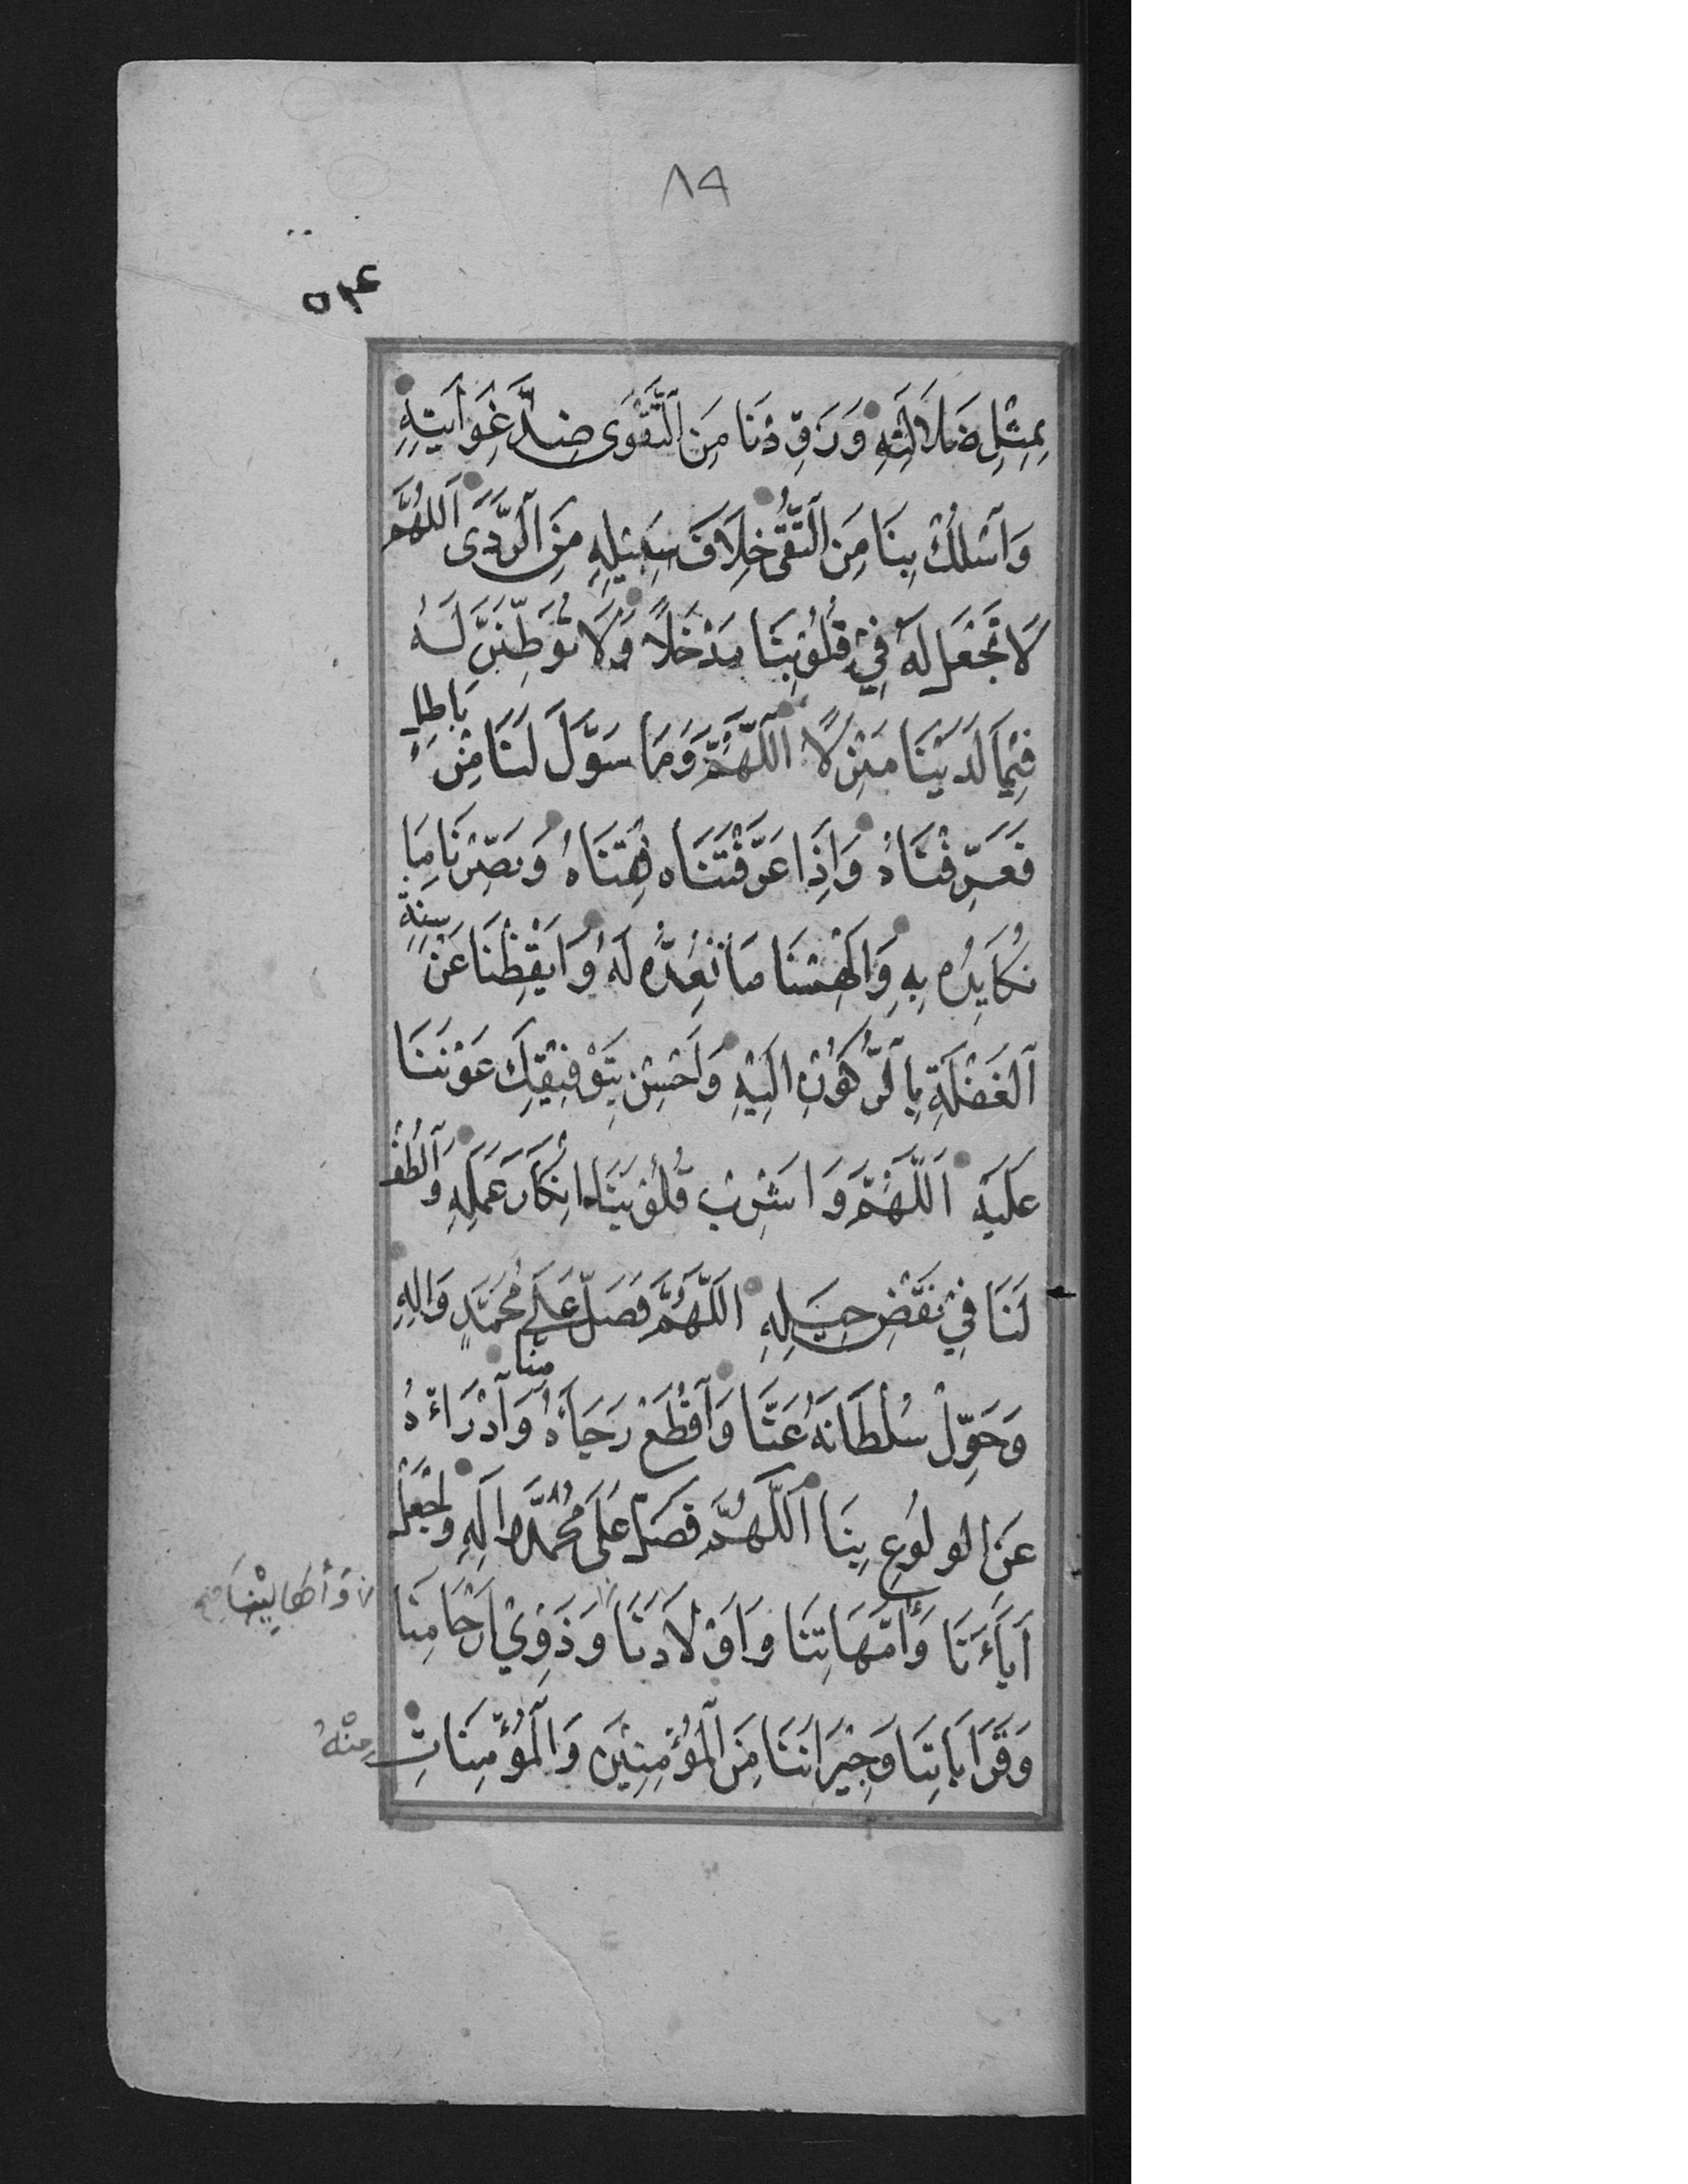 ٨٩
بِمِثْلِ ضَلَالَتِهِ وَزَوِّدْنَا مِنَ ٱلتَّقْوَى ضِدَّ غَوَايَتِهِ
وَٱسْلُكْ بِنَا مِنَ ٱلتُّقَى خِلَافَ سَبِيلِهِ مِنَ ٱلرَّدَى اَللّٰهُمَّ
لَا تَجْعَلْ لَهُ فِي قُلُوبِنَا مَدْخَلًا وَلَا تُوَطِّنَنَّ لَهُ
فِيمَا لَدَيْنَا مَنْزِلًا اَللّٰهُمَّ وَمَا سَوَّلَ لَنَا مِنْ بَاطِلٍ
فَعَرِّفْنَاهُ وَاِذَا عَرَّفْتَنَاه فَقِنَاهُ وَبَصِّرْنَا مَا
نُكَايِدُه بِهِ وَاَلْهِمْنَا مَا نُعِدُّه لَهُ وَاَيْقِظْنَا عَنْ سِنَةِ
ٱلْغَفْلَةِ بِالرُّكُونِ اِلَيْهِ وَاَحْسِنْ بِتَوْفِيقِكَ عَوْنَنَا
عَلَيْهِ اَللّٰهُمَّ وَاَشْرِبْ قُلُوبَنَا اِنْكَارَ عَمَلِهِ وَٱلْطُفْ
لَنَا فِي نَقْضِ حِيَلِهِ اَللّٰهُمَّ فَصَلِّ عَلَى مُحَمَّدٍ وَاٰلِهِ
وَحَوِّلْ سُلْطَانَهُ عَنَّا وَٱقْطَعْ رَجَاءَهُ مِنَّا وَٱدْرَاْهُ
عَنِ الْوُلُوعِ بِنَا اَللّٰهُمَّ فَصَلِّ عَلَى مُحَمَّدٍ وَاٰلِهِ وَاجْعَلْ
اٰبَاءَنَا وَاُمَّهَاتِنَا وَاَوْلَادَنَا وَذَوِي اَرْحَامِنَا
وَأَهَالِيْنَا
وَقَرَابَاتِنَا وَجِيْرَانَنَا مِنَ ٱلْمُؤْمِنِيْنَ وَٱلْمُؤْمِنَاتِ
مِنْهُ